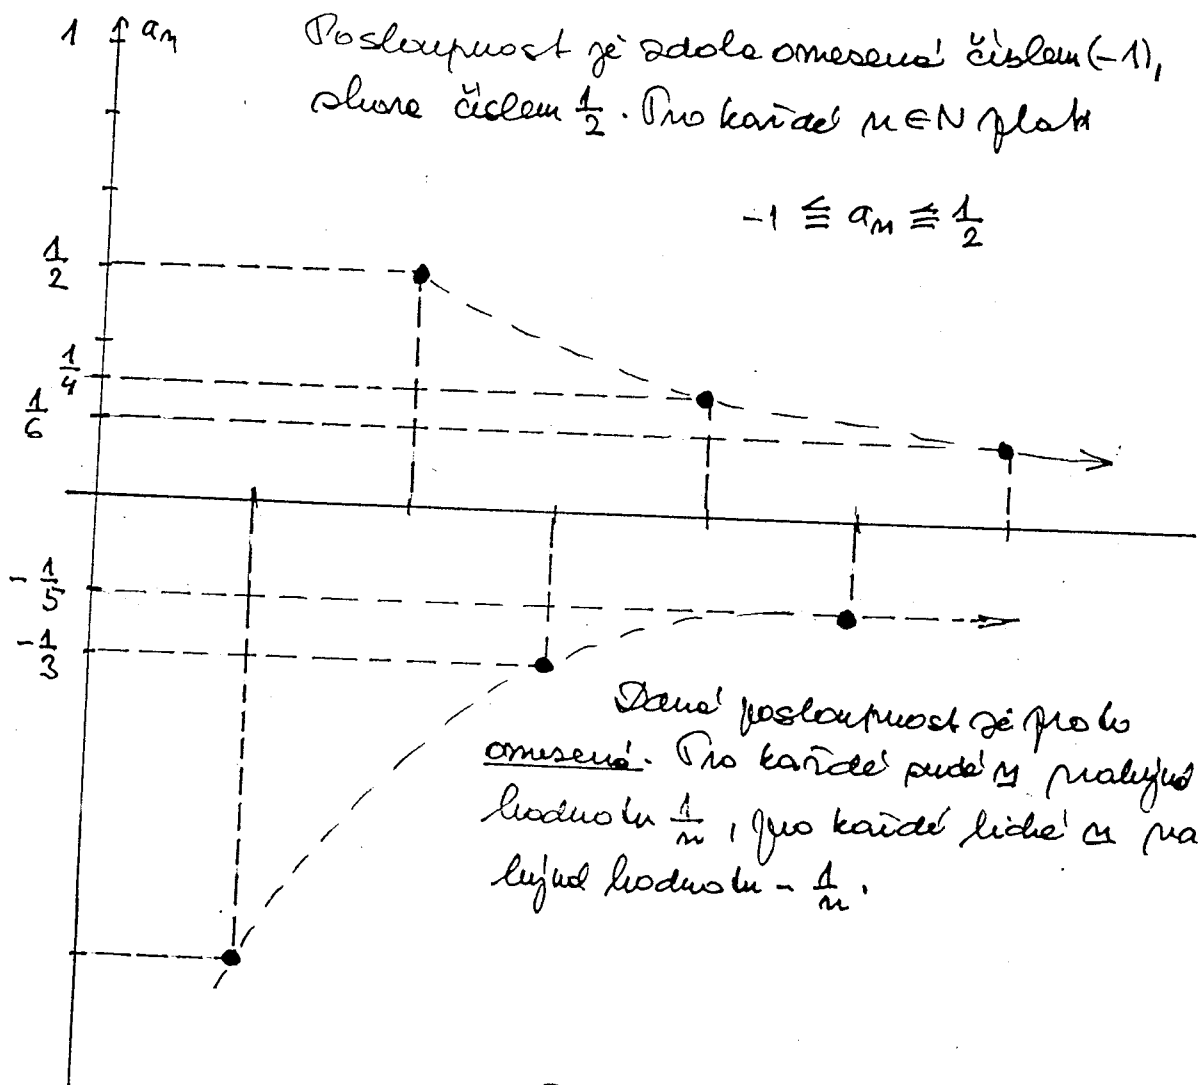 1 aₙ
Posloupnost je zdola omezená číslem (-1),
shora číslem 1/2. Pro každé n ∈ N platí
-1 ≦ aₙ ≦ 1/2
1/2
1/4
1/6
-1/5
-1/3
Daná posloupnost je proto
omezená. Pro každé sudé n nabývá
hodnotu 1/n, pro každé liché n na
bývá hodnotu - 1/n.